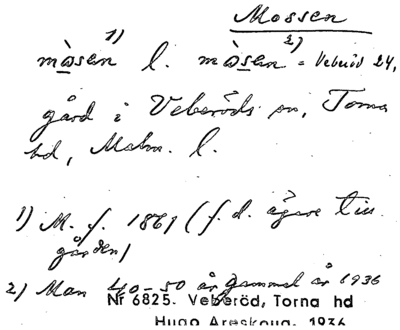 Mossen
1) 2)
mòsen l. mòsen = Veberöd 24,
gård i Veberöds sn, Torna
hd, Malm. l.
1) M. f. 1861 (f. d. ägare till
gården)
2) Man 40-50 år gammal år 1936
Nr 6825. Veberöd, Torna hd
Hugo Areskoug. 1936